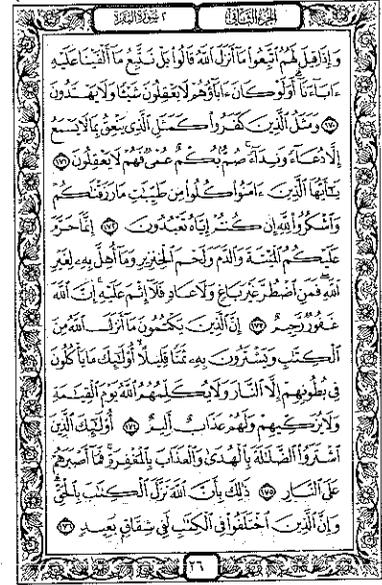 الجزء الثاني
٢ سورة البقرة
وَإِذَا قِيلَ لَهُمُ اتَّبِعُوا مَا أَنزَلَ اللَّهُ قَالُوا بَلْ نَتَّبِعُ مَا أَلْفَيْنَا عَلَيْهِ
ءَابَاءَنَا أَوَلَوْ كَانَ ءَابَاؤُهُمْ لَا يَعْقِلُونَ شَيْئًا وَلَا يَهْتَدُونَ
﴿١٧٠﴾ وَمَثَلُ الَّذِينَ كَفَرُوا كَمَثَلِ الَّذِي يَنْعِقُ بِمَا لَا يَسْمَعُ
إِلَّا دُعَاءً وَنِدَاءً صُمٌّ بُكْمٌ عُمْيٌ فَهُمْ لَا يَعْقِلُونَ ﴿١٧١﴾
يَا أَيُّهَا الَّذِينَ ءَامَنُوا كُلُوا مِن طَيِّبَاتِ مَا رَزَقْنَاكُمْ
وَاشْكُرُوا لِلَّهِ إِن كُنتُمْ إِيَّاهُ تَعْبُدُونَ ﴿١٧٢﴾ إِنَّمَا حَرَّمَ
عَلَيْكُمُ الْمَيْتَةَ وَالدَّمَ وَلَحْمَ الْخِنزِيرِ وَمَا أُهِلَّ بِهِ لِغَيْرِ
اللَّهِ فَمَنِ اضْطُرَّ غَيْرَ بَاغٍ وَلَا عَادٍ فَلَا إِثْمَ عَلَيْهِ إِنَّ اللَّهَ
غَفُورٌ رَّحِيمٌ ﴿١٧٣﴾ إِنَّ الَّذِينَ يَكْتُمُونَ مَا أَنزَلَ اللَّهُ مِنَ
الْكِتَابِ وَيَشْتَرُونَ بِهِ ثَمَنًا قَلِيلًا أُولَٰئِكَ مَا يَأْكُلُونَ
فِي بُطُونِهِمْ إِلَّا النَّارَ وَلَا يُكَلِّمُهُمُ اللَّهُ يَوْمَ الْقِيَامَةِ
وَلَا يُزَكِّيهِمْ وَلَهُمْ عَذَابٌ أَلِيمٌ ﴿١٧٤﴾ أُولَٰئِكَ الَّذِينَ
اشْتَرَوُا الضَّلَالَةَ بِالْهُدَىٰ وَالْعَذَابَ بِالْمَغْفِرَةِ فَمَا أَصْبَرَهُمْ
عَلَى النَّارِ ﴿١٧٥﴾ ذَٰلِكَ بِأَنَّ اللَّهَ نَزَّلَ الْكِتَابَ بِالْحَقِّ
وَإِنَّ الَّذِينَ اخْتَلَفُوا فِي الْكِتَابِ لَفِي شِقَاقٍ بَعِيدٍ ﴿١٧٦﴾
٢٦